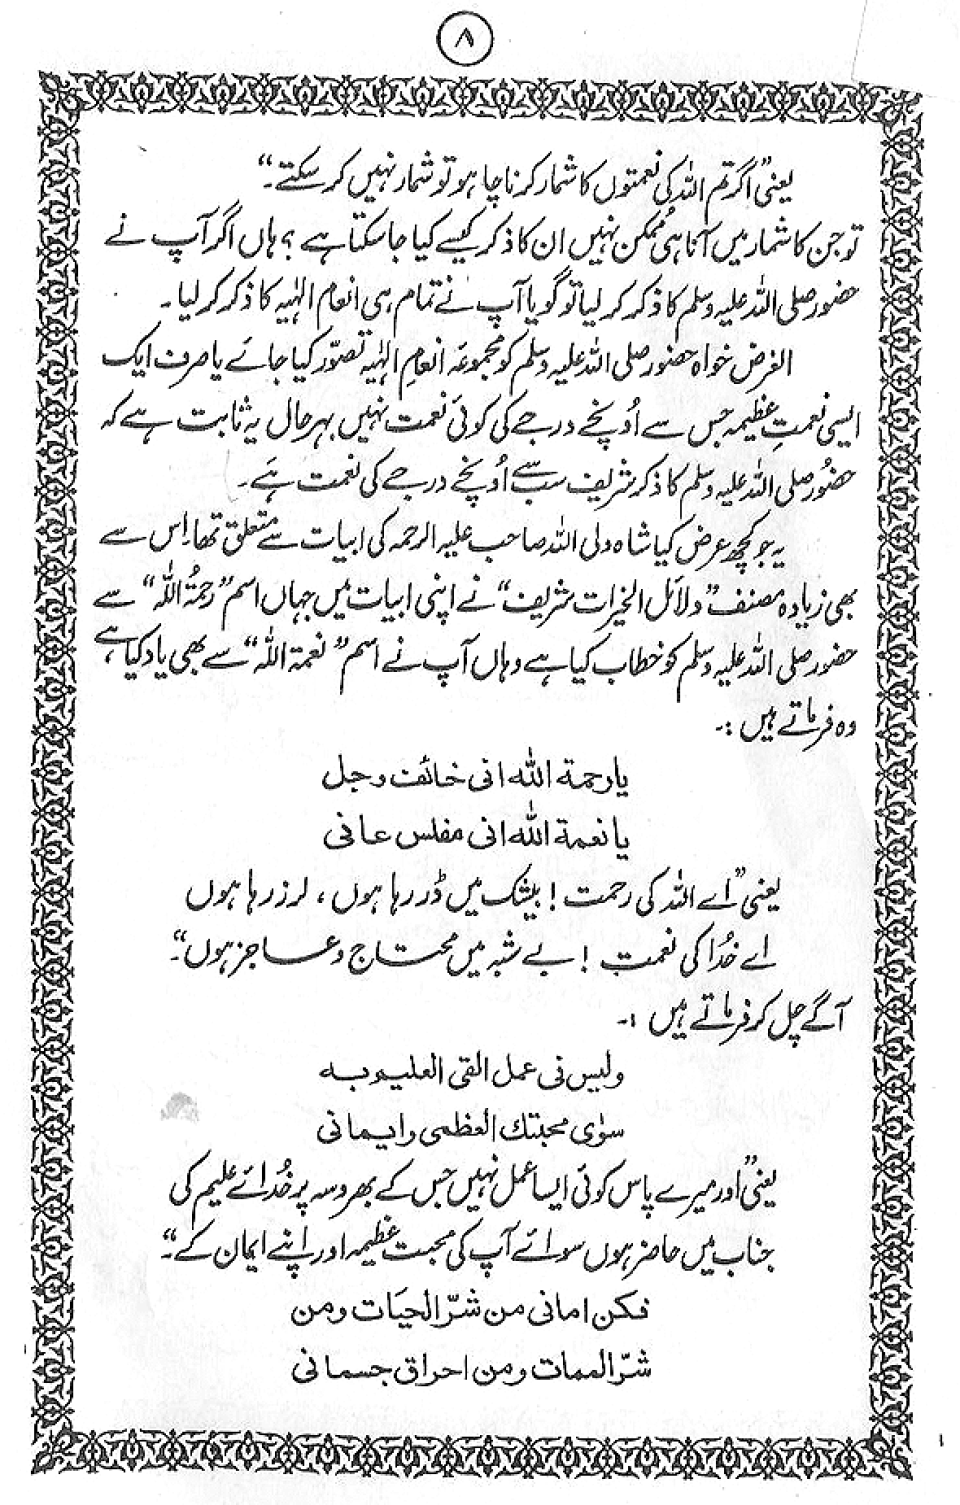 ۸
یعنی ”اگر تم اللہ کی نعمتوں کا شمار کرنا چاہو تو شمار نہیں کر سکتے۔“
تو جن کا شمار میں آنا ہی ممکن نہیں ان کا ذکر کیسے کیا جا سکتا ہے ؟ ہاں اگر آپ نے
حضور صلی اللہ علیہ وسلم کا ذکر کر لیا تو گویا آپ نے تمام ہی انعام الٰہیہ کا ذکر کر لیا۔
الغرض خواہ حضور صلی اللہ علیہ وسلم کو مجموعہ انعام الٰہیہ تصوّر کیا جائے یا صرف ایک
ایسی نعمتِ عظیمہ جس سے اُونچے درجے کی کوئی نعمت نہیں بہر حال یہ ثابت ہے کہ
حضُور صلی اللہ علیہ وسلم کا ذکر شریف سب سے اُونچے درجے کی نعمت ہے۔
یہ جو کچھ عرض کیا شاہ ولی اللہ صاحب علیہ الرحمہ کی ابیات سے متعلق تھا اِس سے
بھی زیادہ مصنف ”دلائل الخیرات شریف“ نے اپنی ابیات میں جہاں اسم ”رحمۃُ اللہ“ سے
حضور صلی اللہ علیہ وسلم کو خطاب کیا ہے وہاں آپ نے اسم ”نعمۃ اللہ“ سے بھی یاد کیا ہے
وہ فرماتے ہیں :۔
يا رحمة الله انى خائف وجل
يا نعمة الله انى مفلس عانى
یعنی ”اے اللہ کی رحمت ! بیشک میں ڈر رہا ہوں ، لرز رہا ہوں
اے خُدا کی نعمت ! بے شبہ میں محتاج و عاجز ہوں“۔
آگے چل کر فرماتے ہیں :۔
وليس لى عمل القى العليم به
سوٰى محبتك العظمى وايمانى
یعنی ”اور میرے پاس کوئی ایسا عمل نہیں جس کے بھروسہ پر خُدائے علیم کی
جناب میں حاضر ہوں سوائے آپ کی محبت عظیمہ اور اپنے ایمان کے۔“
فكن امانى من شرّ الحيَات ومن
شرّ الممات ومن احراق جسمانى